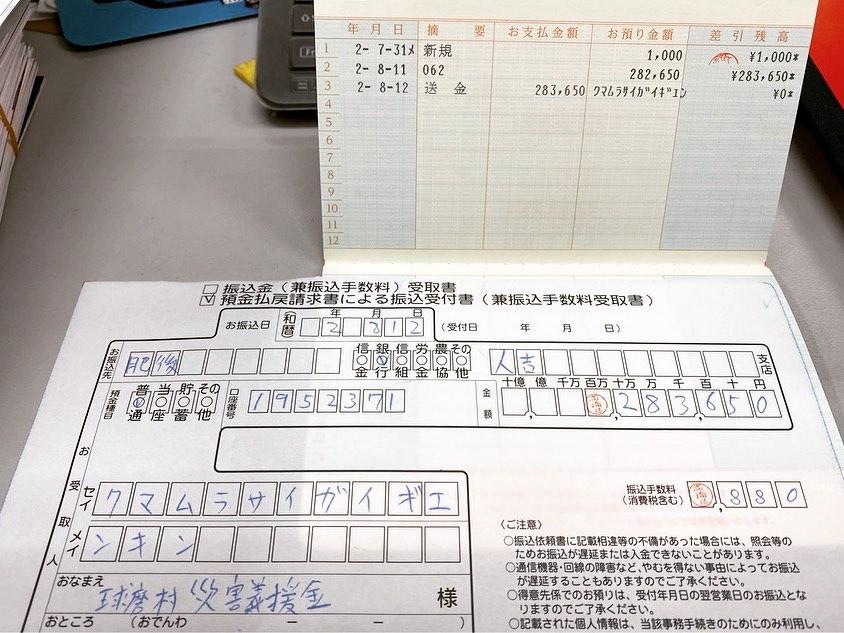 年 月 日 摘 要 お支払金額 お預り金額 差引残高
1 2- 7-31 新規 1,000 ¥1,000*
2 2- 8-11 062 282,650 ¥283,650*
3 2- 8-12 送 金 283,650 クマムラサイガイギエン ¥0*
4
5
6
7
8
9
10
11
12
振込金(兼振込手数料)受取書
預金払戻請求書による振込受付書(兼振込手数料受取書)
お振込日 (和暦) 年 月 日 2 8 1 2 (受付日 年 月 日)
お振込先 肥後 信金 銀行 信組 労金 農協 その他 人吉 支店
預金種目 普通 当座 貯蓄 その他 口座番号 1952371 金額 十億 億 千万 百万 十万 万 千 百 十 円 283,650
お受取人
セイ クマムラサイガイギエ
メイ ンキン
振込手数料(消費税含む) 880
おなまえ 球磨村災害義援金 様
おところ (おでんわ - - )
〈ご注意〉
○振込依頼書に記載相違等の不備があった場合には、照会等の
ためお振込が遅延または入金できないことがあります。
○通信機器・回線の障害など、やむを得ない事由によってお振込
が遅延することもありますのでご了承ください。
○得意先係でのお預りは、受付年月日の翌営業日のお振込とな
りますのでご了承ください。
○記載された個人情報は、当該事務手続きのためにのみ利用し、